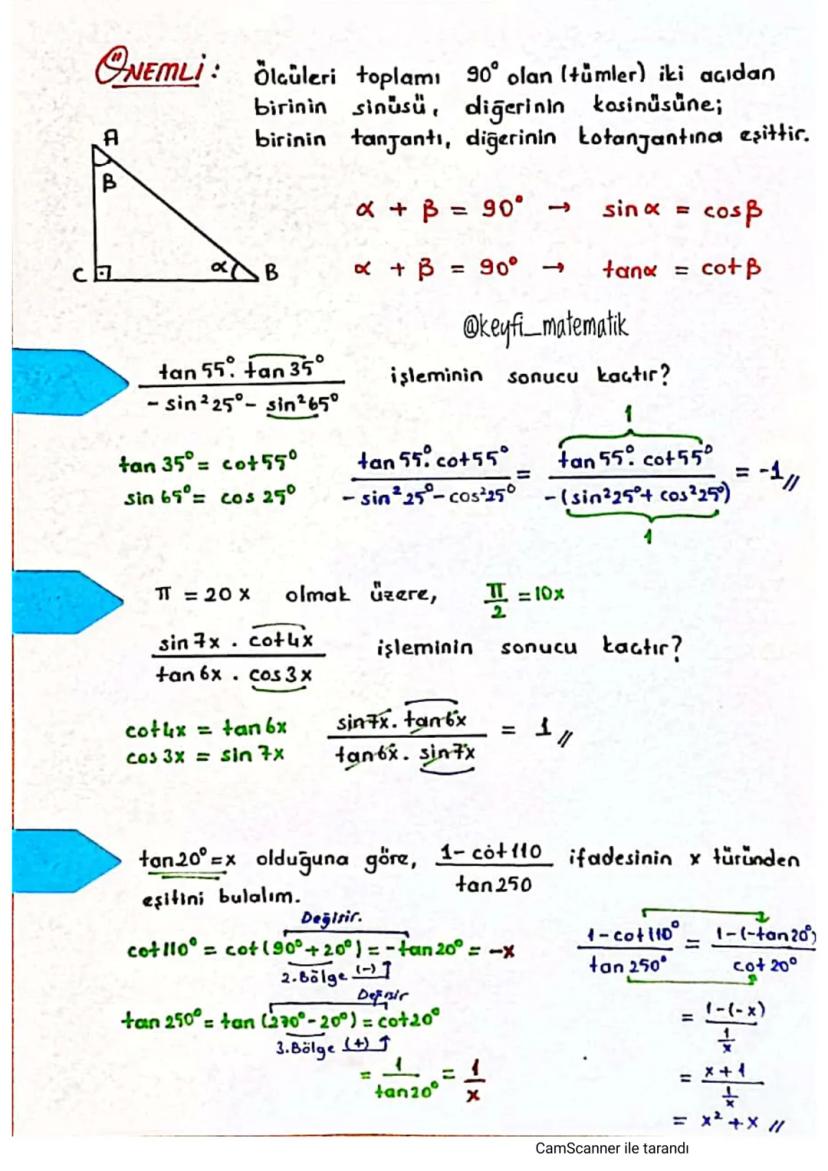 ÖNEMLİ: Ölçüleri toplamı 90° olan (tümler) iki açıdan
birinin sinüsü, diğerinin kosinüsüne;
birinin tanjantı, diğerinin kotanjantına eşittir.
A
β
C α B
α + β = 90° → sin α = cosβ
α + β = 90° → tanα = cotβ
@keyfi_matematik
tan 55°. tan 35° / - sin²25° - sin²65° işleminin sonucu kaçtır?
tan 35° = cot55°
sin 65° = cos 25°
tan 55°. cot55° / - sin²25° - cos²25° = tan 55°. cot55° / -(sin²25° + cos²25°) = -1//
1
1
π = 20x olmak üzere, π/2 = 10x
sin 7x . cot4x / tan 6x . cos 3x işleminin sonucu kaçtır?
cot4x = tan 6x
cos 3x = sin 7x
sin7x. tan6x / tan6x. sin7x = 1//
tan20° = x olduğuna göre, 1-cot110 / tan250 ifadesinin x türünden
eşitini bulalım.
Değişir.
cot110° = cot(90°+20°) = -tan20° = -x
2.Bölge (-)
Değişir
tan 250° = tan (270°-20°) = cot20°
3.Bölge (+)
= 1/tan20° = 1/x
1-cot110° / tan 250° = 1-(-tan20°) / cot 20°
= 1-(-x) / 1/x
= x+1 / 1/x
= x² + x //
CamScanner ile tarandı